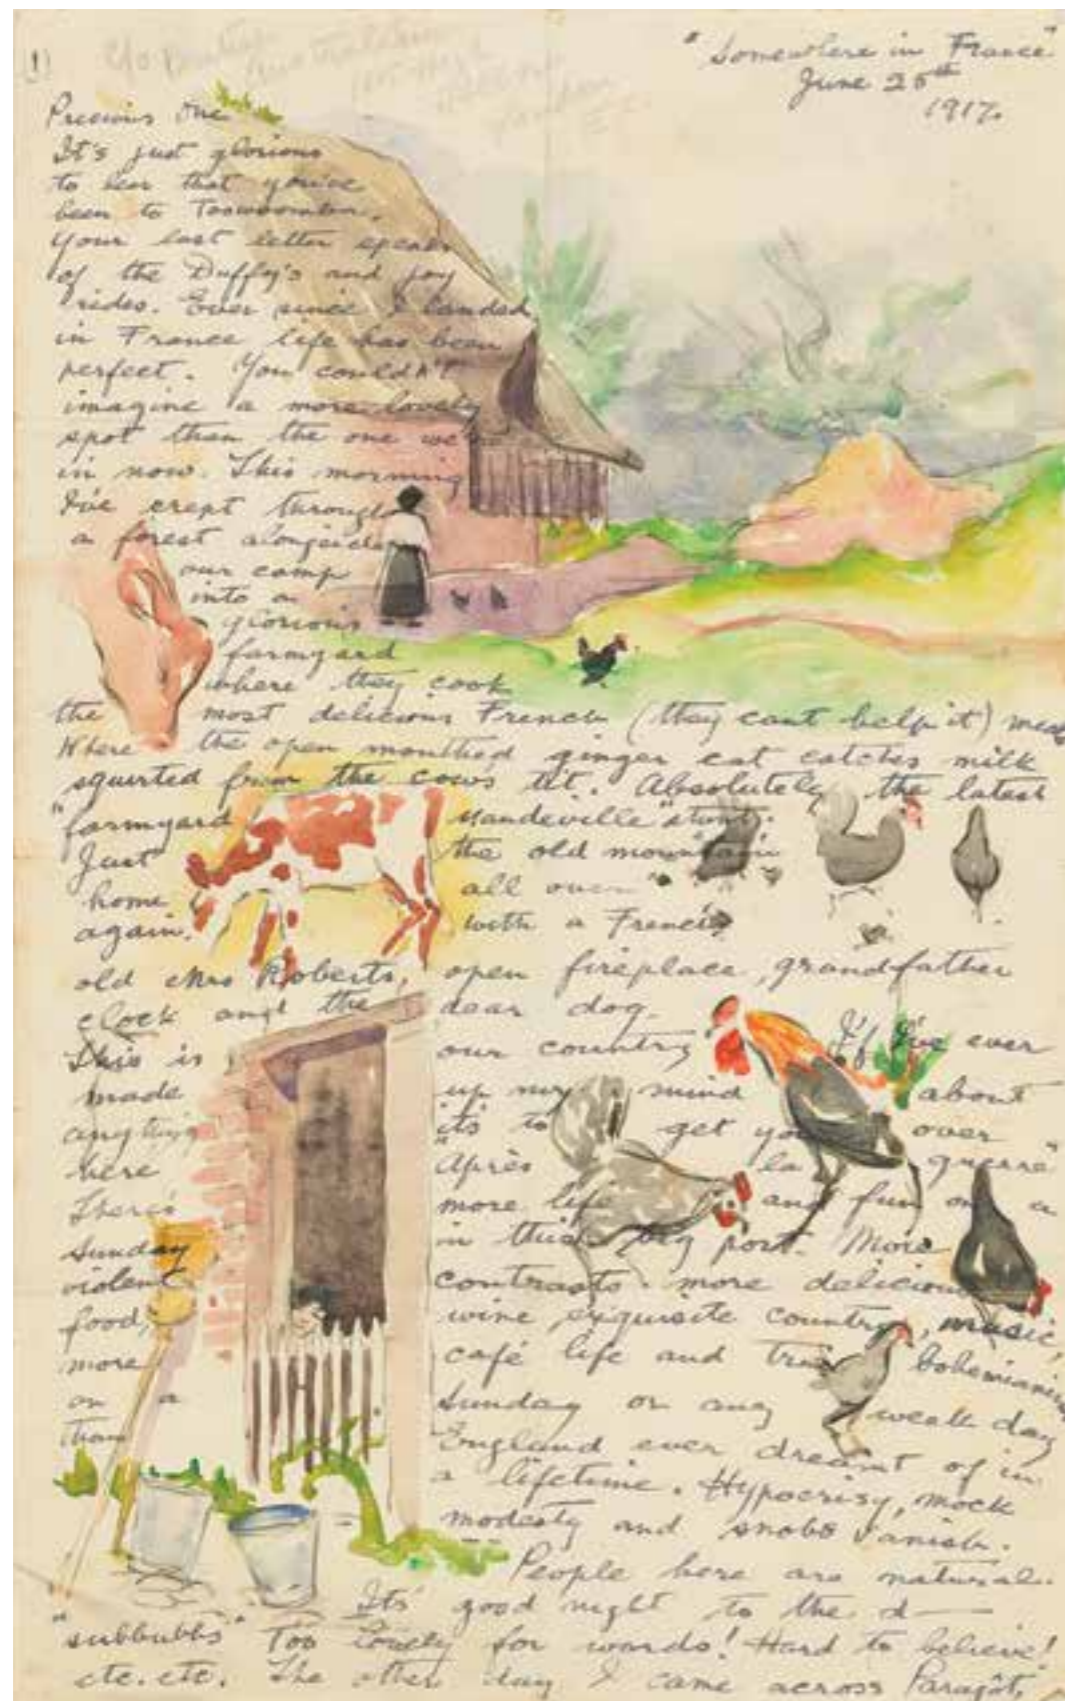 1)
c/o
"Somewhere in France"
June 25th
1917.
Precious One
It's just glorious
to hear that you've
been to Toowoomba.
Your last letter speaks
of the Duffy's and joy
rides. Ever since I landed
in France life has been
perfect. You couldn't
imagine a more lovely
spot than the one we're
in now. This morning
I've crept through
a forest alongside
our camp
into a
glorious
farmyard
where they cook
the most delicious French (they cant help it) meals
Where the open mouthed ginger cat catches milk
squirted from the cows tit. Absolutely the latest
"farmyard Vaudeville" stunt.
Just the old mountain
home all over
again. with a French
old Mrs Roberts, open fireplace, grandfather
clock and the dear dog.
This is our country If I've ever
made up my mind about
anything its to get you over
here "Après la guerre"
There's more life and fun on a
Sunday in this big port. More
violent contrasts. more delicious
food, wine, exquisite country, music,
more café life and true bohemianism
on a Sunday or any weak day
than England ever dreamt of in
a lifetime. Hypocrisy, mock
modesty and snobs vanish.
People here are natural.
Its good night to the d—
"subbubbs" Too lovely for words! Hard to believe!
etc. etc. The other day I came across Paragôt,